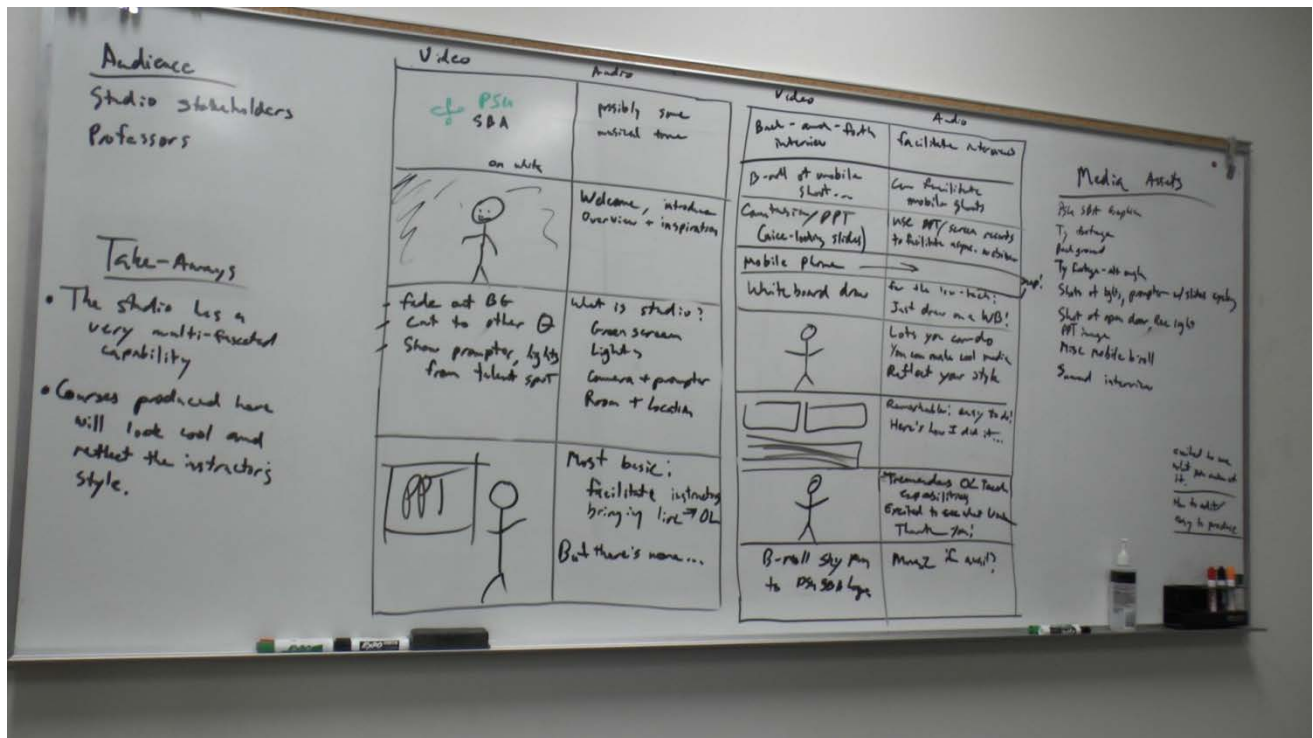 Audience
Studio stakeholders
Professors
Take-Aways
• The studio has a
very multi-faceted
capability
• Courses produced here
will look cool and
reflect the instructor's
style.
Video
Audio
PSU
SBA
on white
possibly some
musical tone
Welcome, introduce
Overview + inspiration
- fade out BG
- Cut to other
- Show prompter, lights
from talent spot
What is studio?
Green screen
Lights
Camera + prompter
Room + Location
PPT
Most basic:
facilitate instructors
bringing live → OL
But there's more...
Video
Audio
Back-and-forth
interview
facilitate interviews
B-roll of mobile
shoot...
Can facilitate
mobile shoots
Camtasia/PPT
(nice-looking slides)
use PPT/screen records
to facilitate async.
Mobile Phone →
Whiteboard draw
for the low-tech:
Just draw on a WB!
Lots you can do
You can make cool media
Reflect your style
Remarkably easy to do!
Here's how I did it...
Tremendous OL Teach
capabilities
Excited to see what
Thank you!
B-roll sky pan
to PSU SBA logo
if avail?
Media Assets
PSU SBA Graphic
Ty
Background
Ty footage - alt angle
Shots of lights, prompter w/ slides
Shot of open door, Rec light
PPT image
Misc mobile b-roll
Sound interview
excited to see
what you make of
it.
easy to produce
EXPO